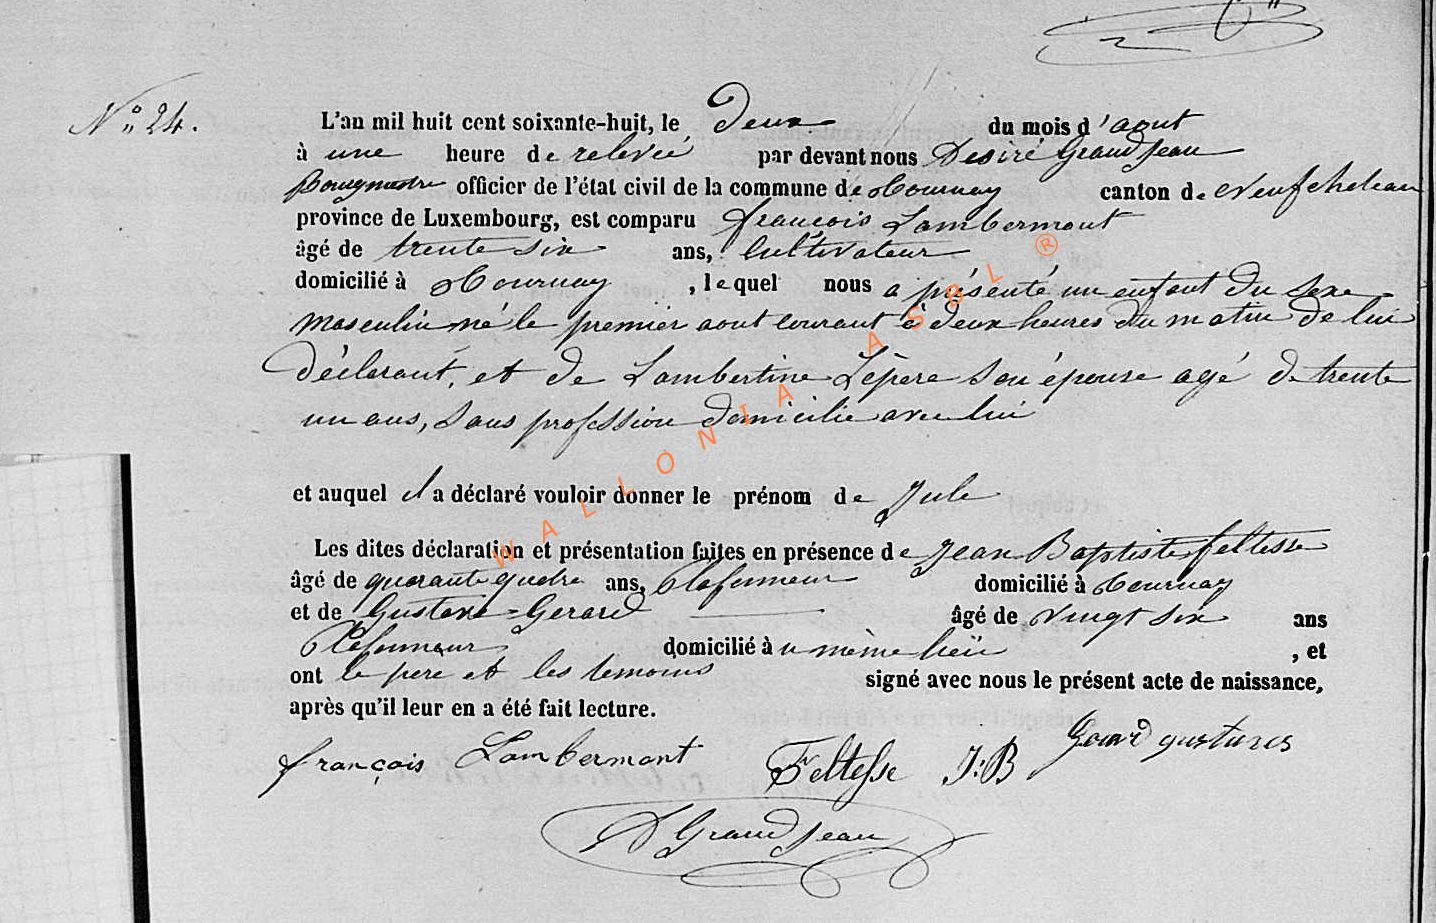 N° 24.
L'an mil huit cent soixante-huit, le deux du mois d'aout
à une heure de relevée par devant nous Desiré Grandjean
Bougmestre officier de l'état civil de la commune de Tournay canton de Neufchateau
province de Luxembourg, est comparu françois Lambermont
âgé de trente six ans, Cultivateur
domicilié à Tournay, lequel nous a présenté un enfant du sexe
masculin né le premier aout courant à deux heures du matin de lui
déclarant, et de Lambertine Lépère son épouse agé de trente
un ans, sans profession domicilie avec lui
et auquel il a déclaré vouloir donner le prénom de Jule
Les dites déclaration et présentation faites en présence de Jean Baptiste feltesse
âgé de quarante quatre ans, Plafonneur domicilié à Tournay
et de Gustave Gerard âgé de vingt six ans
Plafonneur domicilié à u même lieu, et
ont le pere et les temoins signé avec nous le présent acte de naissance,
après qu'il leur en a été fait lecture.
françois Lambermont Feltesse J.B Gerard gustaves
D Grandjean
WALLONIA ASBL ®